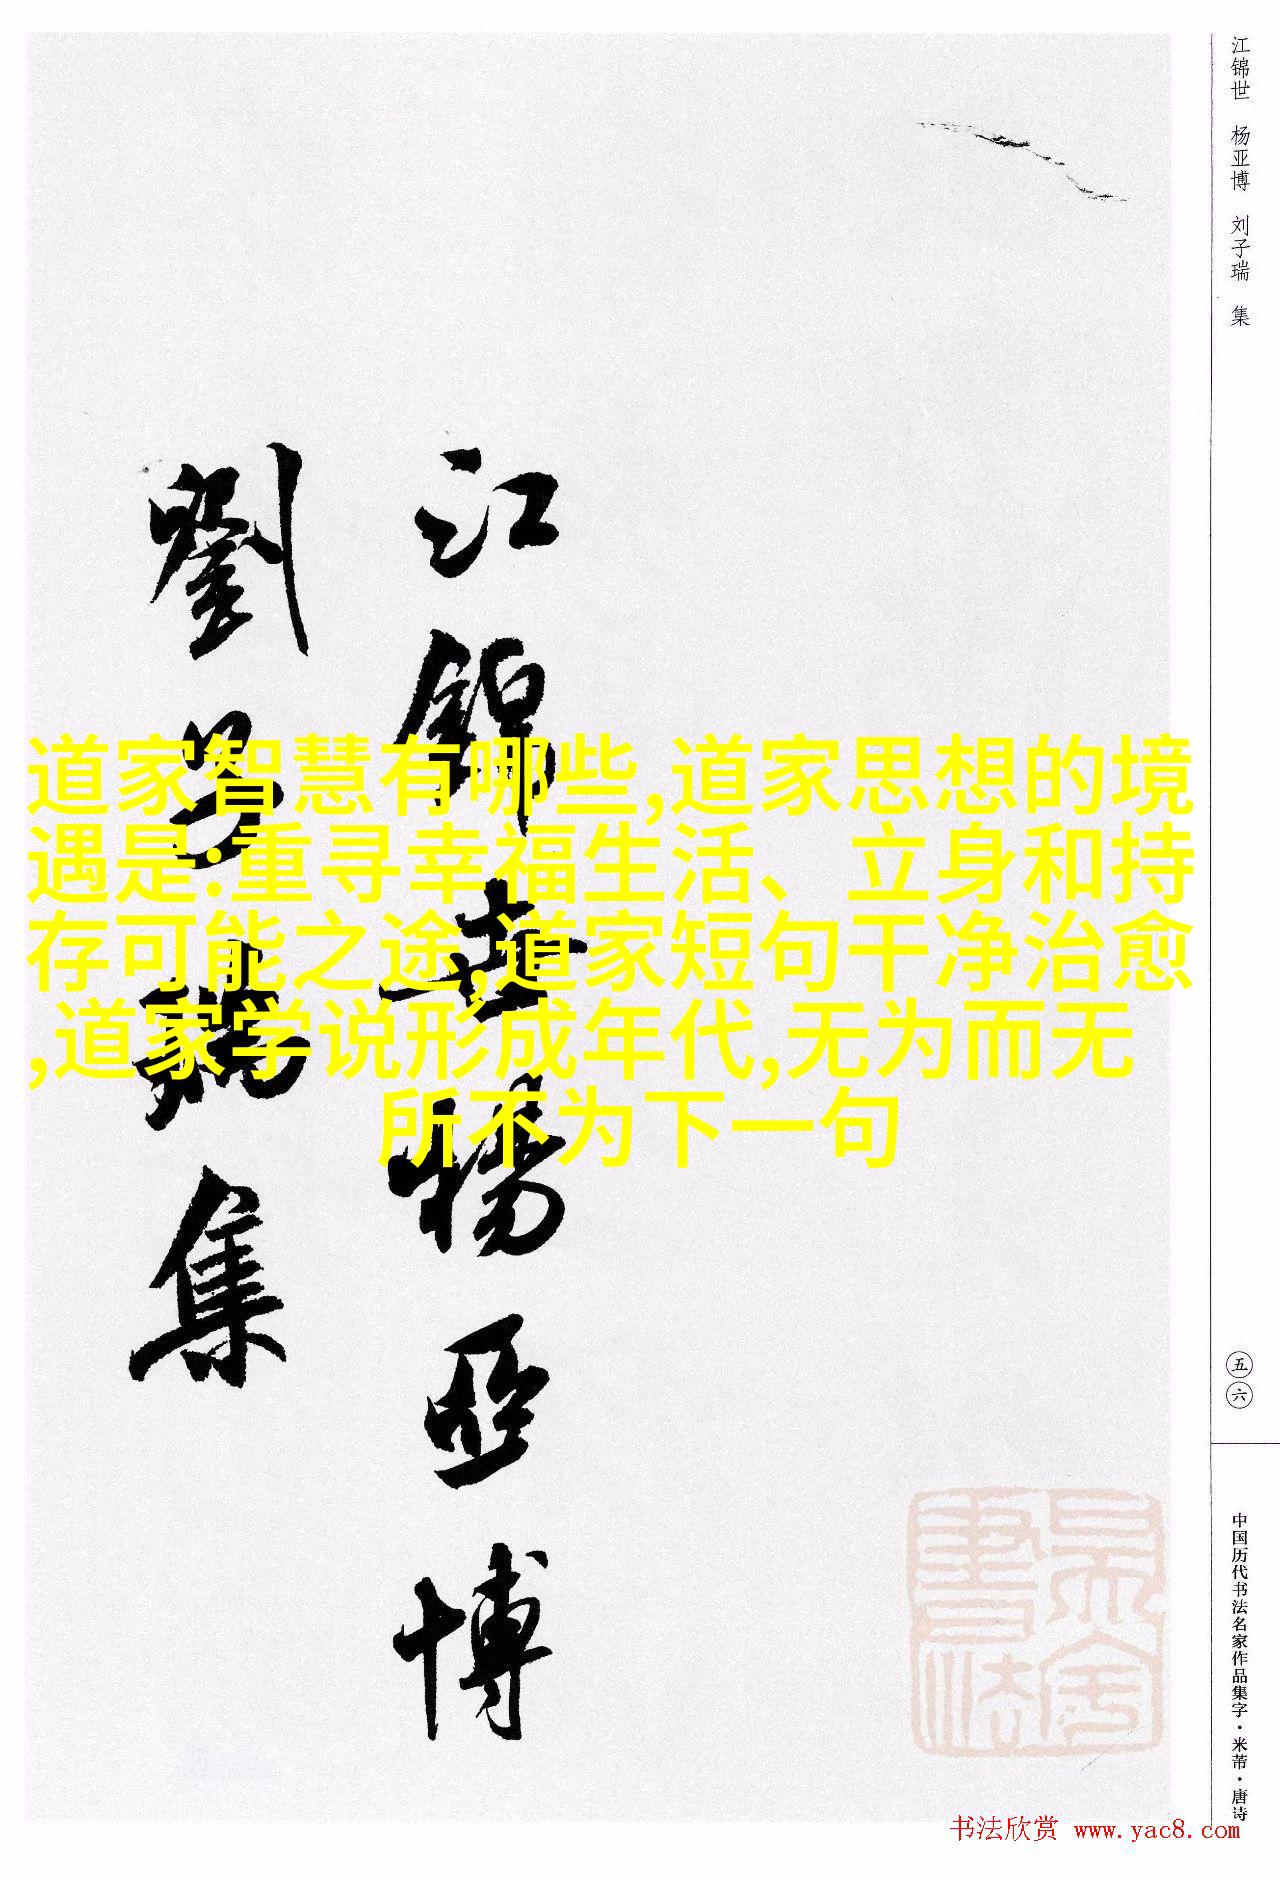 江锦世 杨亚博 刘子瑞 集
江錦世楊亞博
劉子瑞集
道家智慧有哪些,道家思想的境
遇是:重寻幸福生活、立身和持
存可能之途,道家短句干净治愈
,道家学说形成年代,无为而无
所不为下一句
五六
中国历代书法名家作品集字·米芾·唐诗
书法欣赏 www.yac8.com